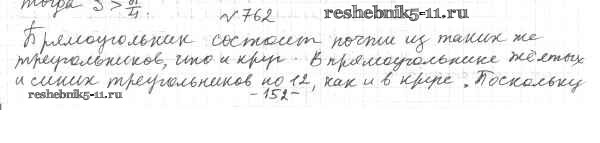 тогда S > π/4.
№ 762 reshebnik5-11.ru
Прямоугольник состоит почти из таких же
треугольников, что и круг. В прямоугольнике жёлтых
и синих треугольников по 12, как и в круге. Поскольку
reshebnik5-11.ru - 152 -